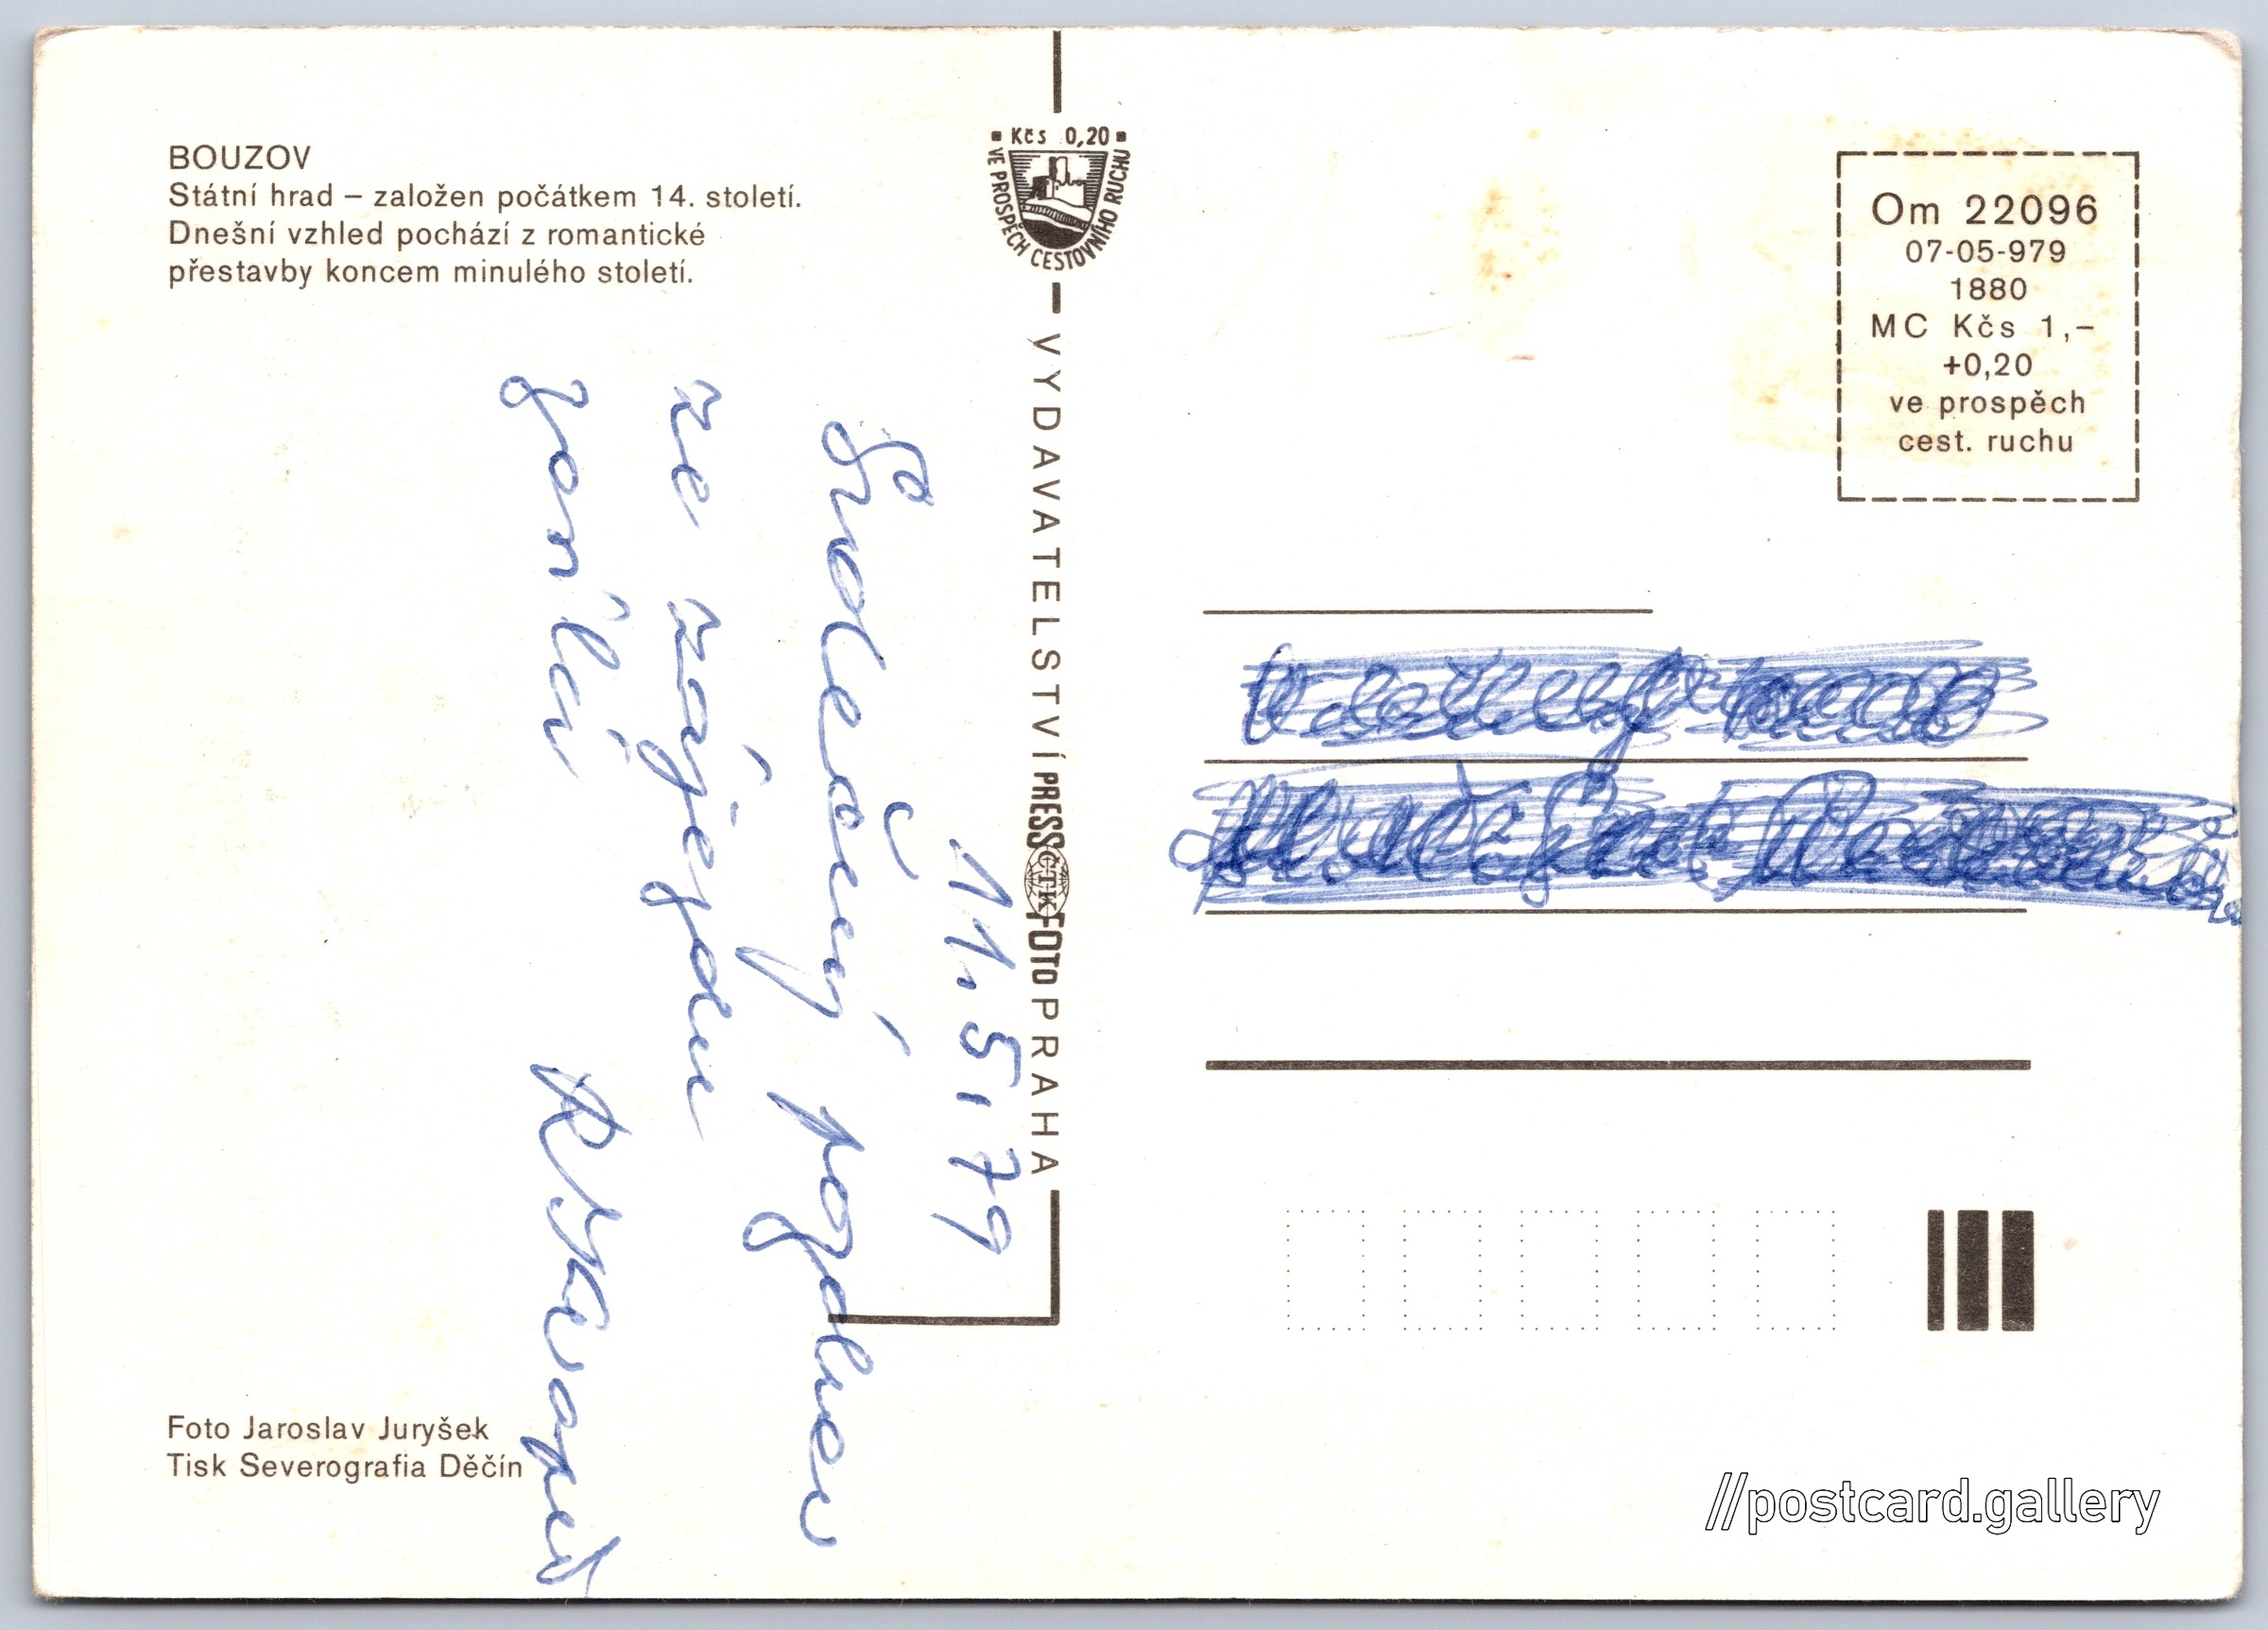 BOUZOV
Státní hrad – založen počátkem 14. století.
Dnešní vzhled pochází z romantické
přestavby koncem minulého století.
Kčs 0,20
VE PROSPĚCH CESTOVNÍHO RUCHU
VYDAVATELSTVÍ PRESSFOTO PRAHA
ČTK
Om 22096
07-05-979
1880
MC Kčs 1,–
+0,20
ve prospěch
cest. ruchu
11.5.79
Srdečný pozdrav
ze zájezdu
Foto Jaroslav Juryšek
Tisk Severografia Děčín
//postcard.gallery